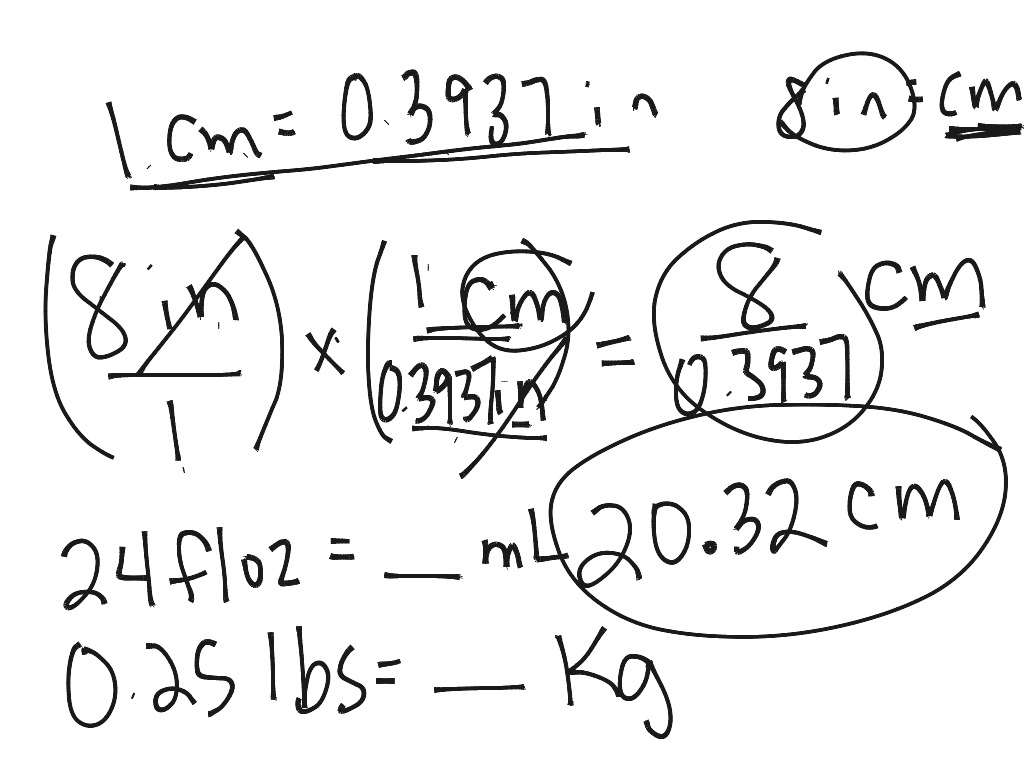 1 cm = 0.3937 in 8 in = cm
(8 in / 1) x (1 cm / 0.3937 in) = 8 / 0.3937 cm
20.32 cm
24 fl oz = __ mL
0.25 lbs = __ Kg